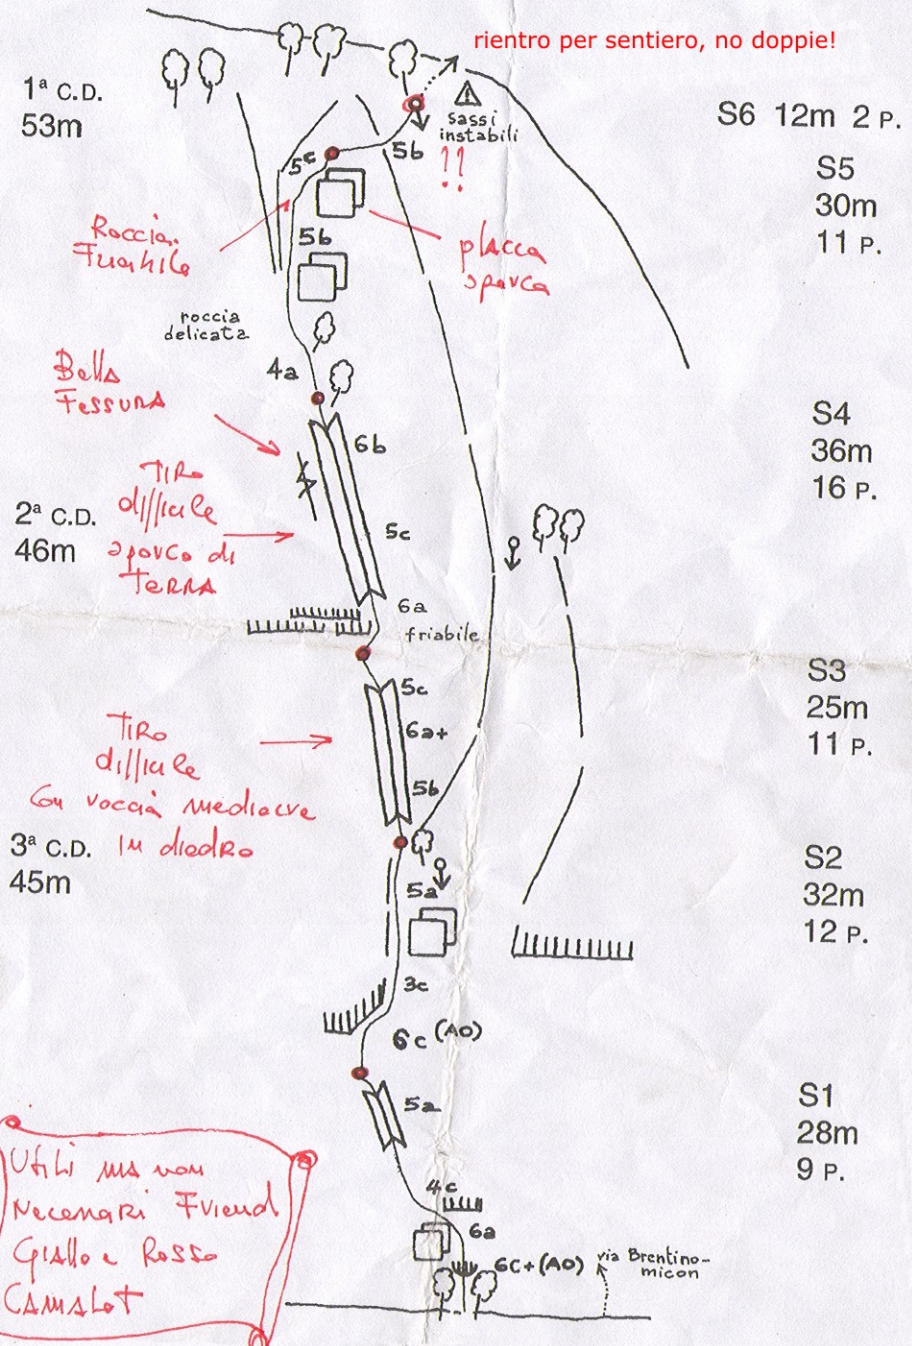 rientro per sentiero, no doppie!
1ª C.D.
53m
sassi
instabili
!!
S6 12m 2 P.
5c
5b
S5
30m
11 P.
Roccia
Friabile
5b
placca
sporca
roccia
delicata
4a
Bella
Fessura
6b
S4
36m
16 P.
Tiro
difficile
sporco di
Terra
2ª C.D.
46m
5c
6a
friabile
5c
6a+
5b
S3
25m
11 P.
Tiro
difficile
con roccia mediocre
in diedro
3ª C.D.
45m
5a
S2
32m
12 P.
3c
6c (AO)
5a
S1
28m
9 P.
4c
6a
6c+ (AO)
via Brentino-
micon
Utili ma non
Necessari Friend
Giallo e Rosso
CAMALOT